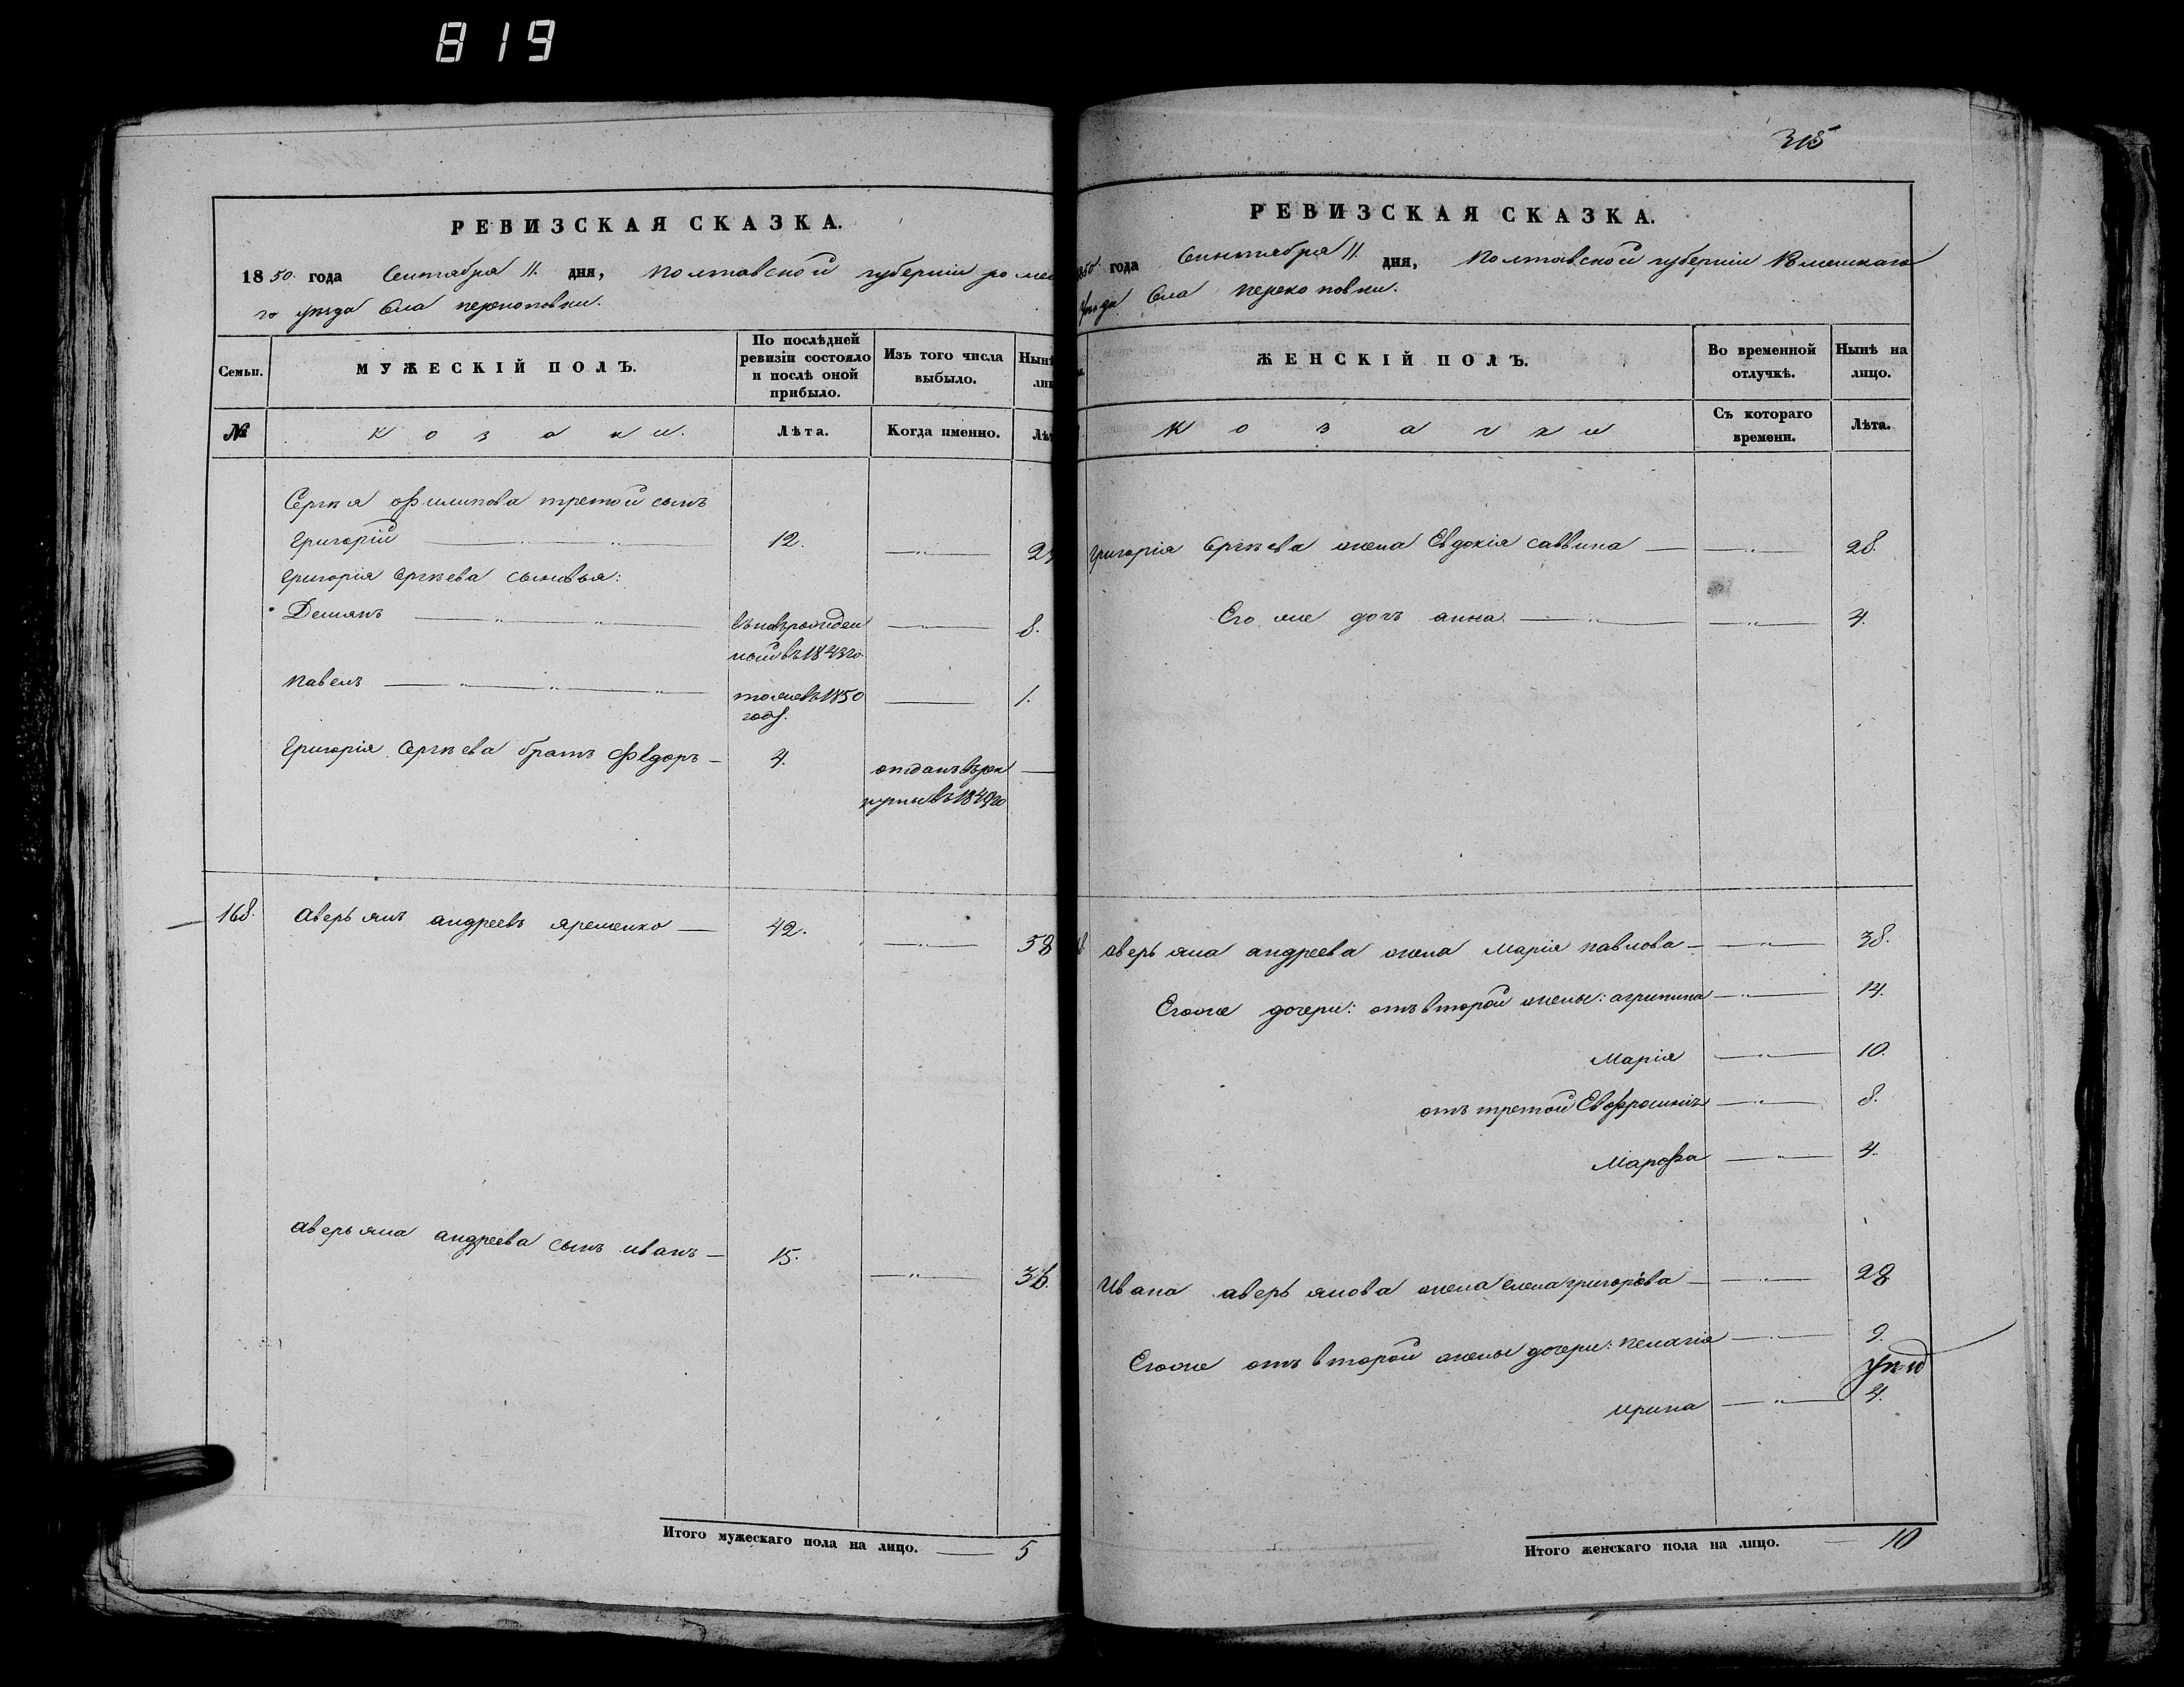 819
РЕВИЗСКАЯ СКАЗКА.
1850. года Сентября 11. дня, Полтавской губерніи роме
го уезда Села перекоповки.
Семьи.
МУЖЕСКІЙ ПОЛЪ.
По послѣдней ревизіи состояло и послѣ оной прибыло.
Изъ того числа выбыло.
Нынѣ
№
козаки.
Лѣта.
Когда именно.
Сергѣя Филипова третой сынъ
Григорій 12.
Григорія Сергѣева сыновья:
Демянъ вновьрожден 8.
ныйвъ1843го.
павелъ тожевъ1850 1.
году.
Григорія Сергѣева братъ Федоръ 4. отданъврек
рутывъ1849го
168. Аверьянъ андреевъ яременко 42. 58
Аверьяна андреева сынъ иванъ 15.
Итого мужескаго пола на лицо. 5
315
РЕВИЗСКАЯ СКАЗКА.
1850. года Сентября 11. дня, Полтавской губерніи Роменскаго
уезда Села перекоповки.
ЖЕНСКІЙ ПОЛЪ.
Во временной отлучкѣ.
Нынѣ на лицо.
козачки
Съ котораго времени.
Лѣта.
Григорія Сергѣева жена Евдокія саввина 28.
Его же дочь анна 4.
аверьяна андреева жена Марія павлова 38.
Егоже дочери: отъ второй жены: агрипина 14.
Марія 10.
отъ третой Евфросинія 8.
Марфа 4.
Ивана аверьянова жена елена григорова 28
Егоже отъ второй жены дочери: пелагія 9.
ирина 4.
Итого женскаго пола на лицо. 10